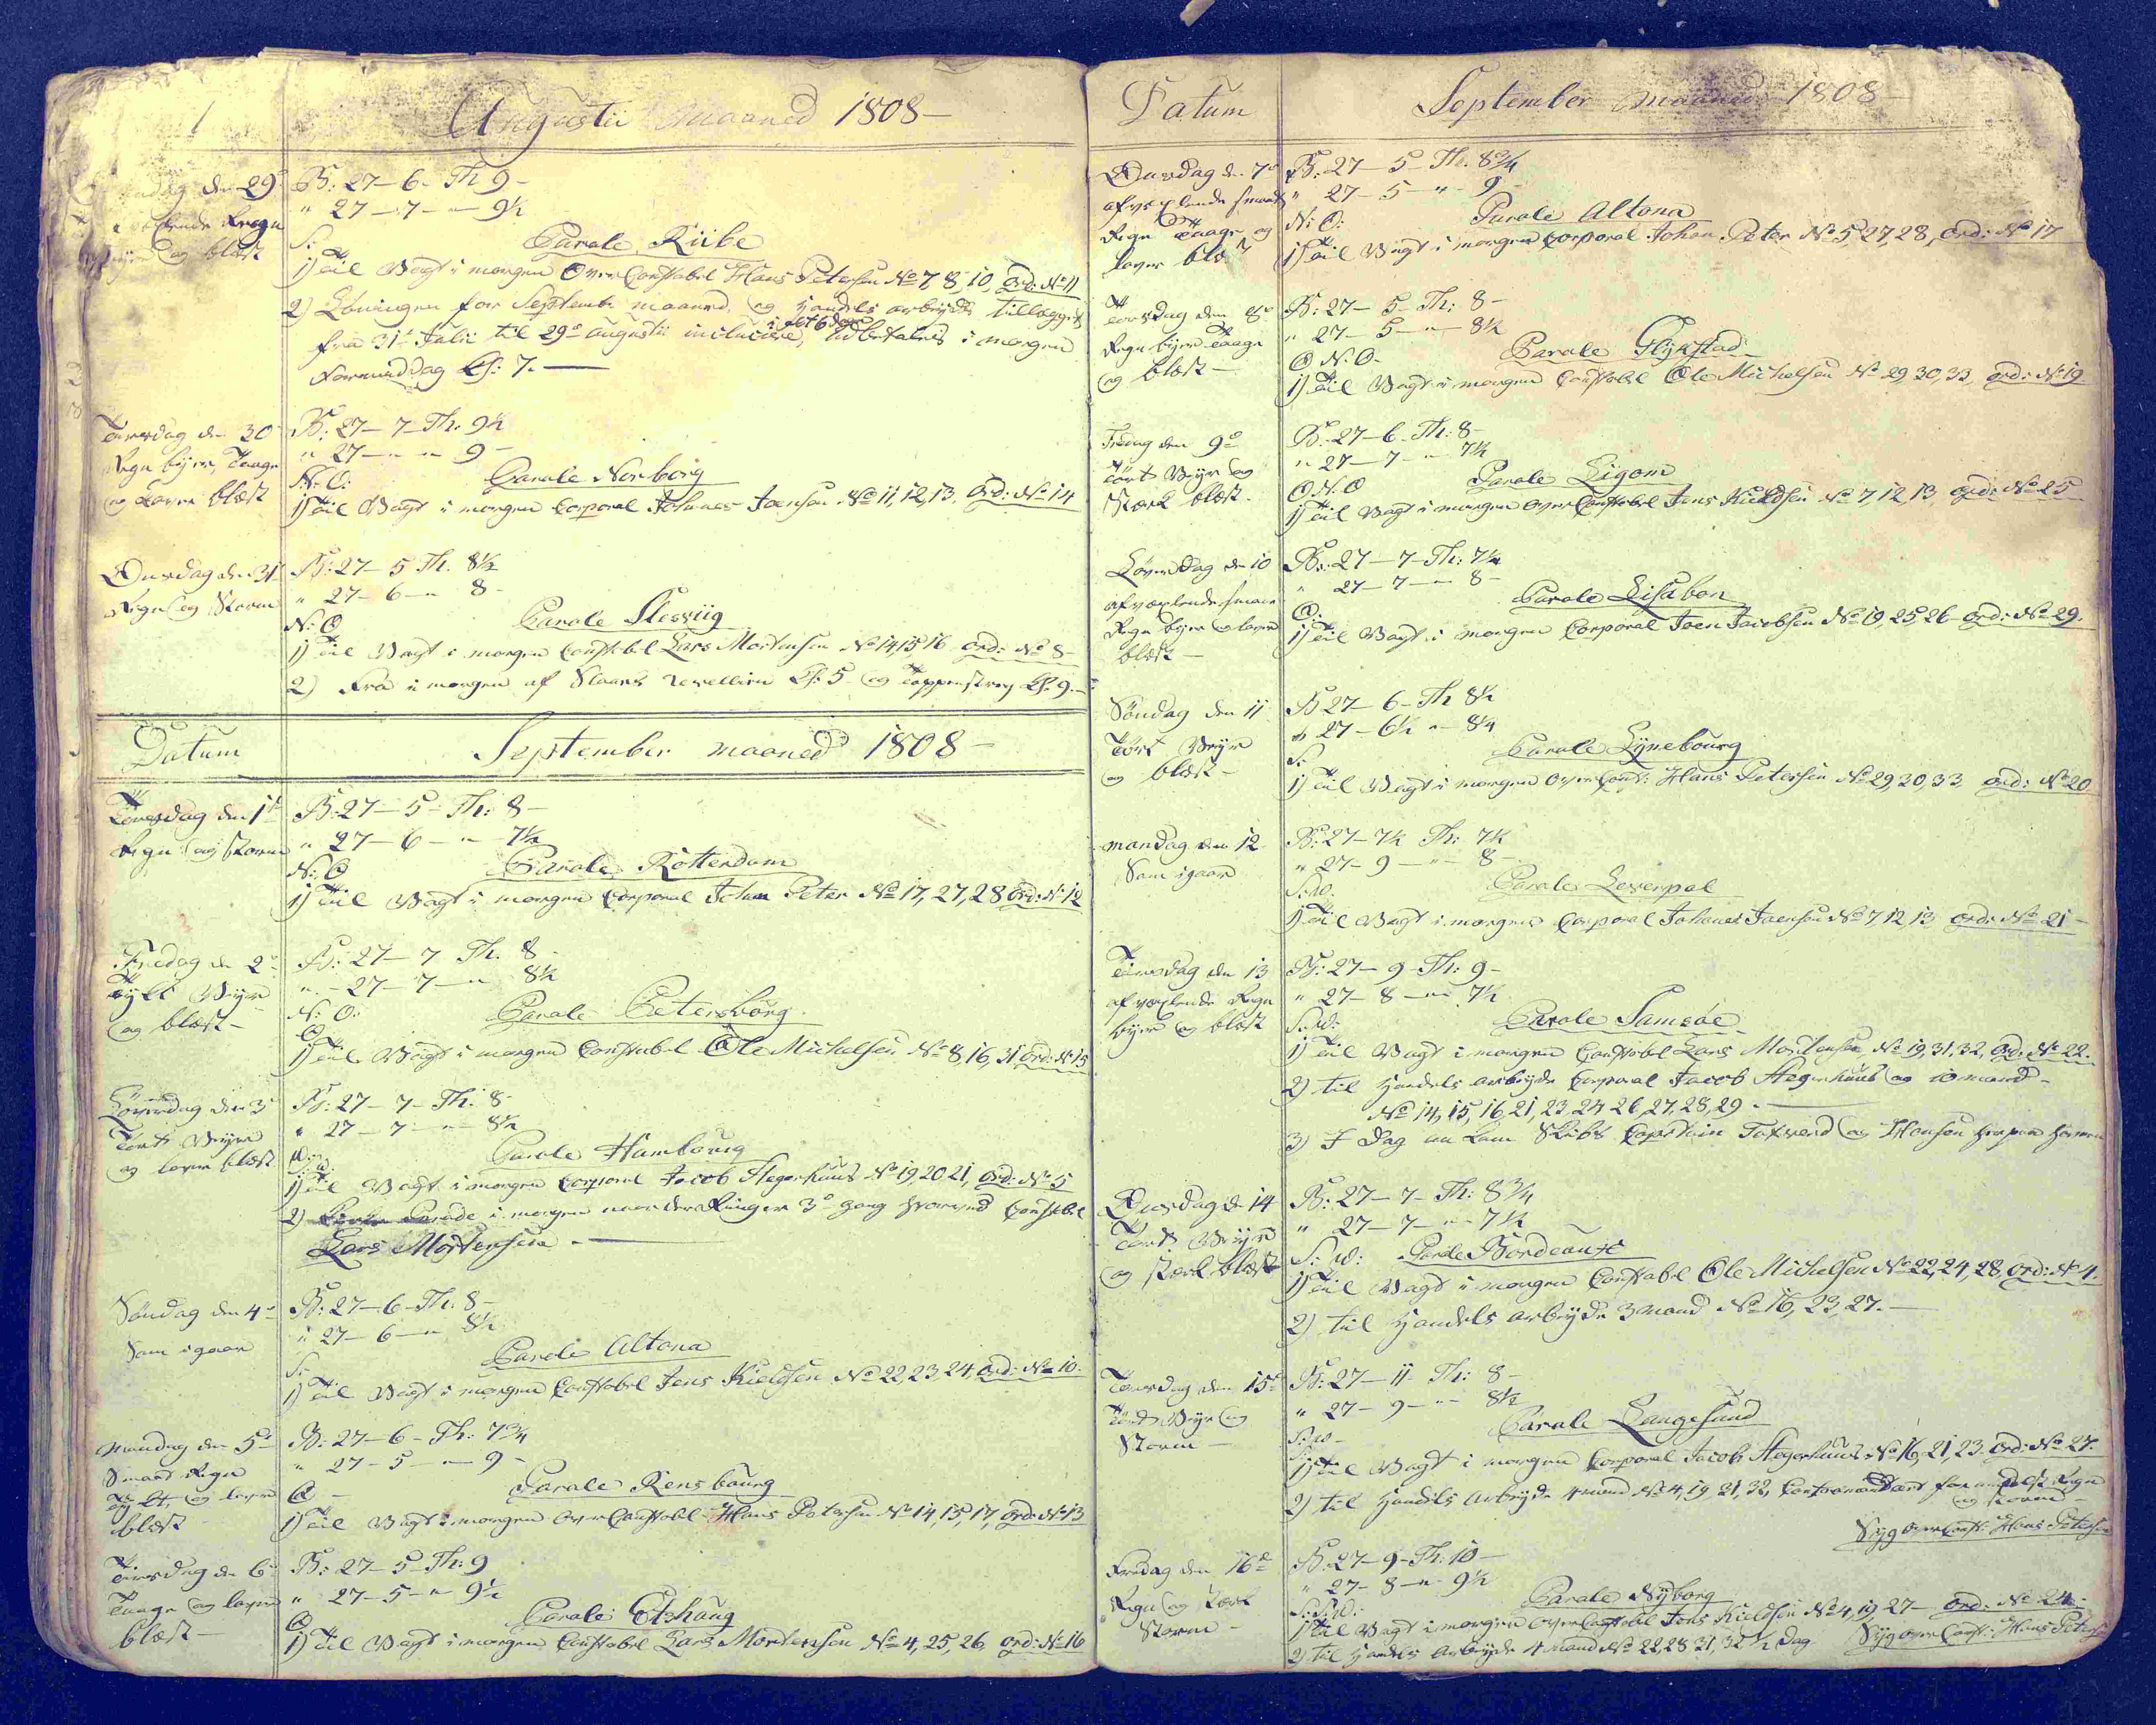 Augustii Maaned 1808 –
den 29de
B: 27 – 6 – Th 9 –
" 27 – 7 – " – 9½
og blæst
S:
Parole Riibe
1) Til Vagt i morgen Over Constabel Hans Petersen No 7, 8, 10, Ord: No 11
2) Lønningen for Septembr maaned, og Handels arbeyds tillægget
fra 31te Julii til 29de augustii inclusive, udbetales i morgen
Formiddag Kl: 7. –
Tirsdag den 30
B: 27 – 7 – Th: 9½
Regn byer, Taage
" 27 – " – " 9 –
og Laver blæst
N: O:
Parole Norborg
1) Til Vagt i morgen Corporal Johanes Joensen No 11, 12, 13, Ord: No 14
Onsdag den 31te
B: 27 – 5 Th. 8½
Regn og Storm
" 27 – 6 – " 8 –
N: O
Parole Slesviig
1) Til Vagt i morgen Constabel Lars Mortensen No 14, 15, 16 Ord: No 8 –
2) Fra i morgen af Slaaes Revellien Kl: 5 og Tappenstreg Kl: 9. –
Datum
September maaned 1808 –
Torsdag den 1te
B: 27 – 5 – Th: 8 –
Regn og Storm
" 27 – 6 – " 7½
N: O
Parole Rotterdam
1) Til Vagt i morgen Corporal Johan Peter No 17, 27, 28 Ord: No 12
Fredag den 2de
B: 27 – 7 Th. 8 –
Tykt Veyer
" – 27 – 7 – " 8½
og blæst –
N: O:
Parole Petersborg.
1) Til Vagt i morgen Constabel Ole Michelsen No 8, 16, 31 Ord: No 15
Løverdag den 3de
B: 27 – 7 – Th: 8 –
Tort Veyer
" 27 – 7 – " 8½
og laver blæst
Parole Hambourg
1) Til Vagt i morgen Corporal Jacob Hegerhuus No 19, 20, 21, Ord: No 5
2) Parade i morgen naar der Ringer 3de gang Constabel
Lars Mortensen –
Søndag den 4de
B: 27 – 6 – Th: 8 –
Som igaar
" 27 – 6 – " 8½
S:
Parole Altona
1) Til Vagt i morgen Constabel Jens Kieldsen No 22, 23, 24, Ord: No 10.
Mandag den 5te
B: 27 – 6 – Th: 7¾
Smaat Regn
" 27 – 5 – " 9 –
Tykt, og laver
O –
Parole Rensbourg
blæst
1) Til Vagt i morgen Over Constabel Hans Petersen No 14, 15, 17, Ord: No 13
Tirsdag den 6te
B: 27 – 5 – Th: 9
Taage og laver
" 27 – 5 – " 9½
blæst –
O
Parole
1) Til Vagt i morgen Constabel Lars Mortensen No 4, 25, 26, Ord: No 16
Datum
September maaned 1808 –
Onsdag den 7de
B: 27 – 5 – Th. 8¾
afvexlende smaat
" 27 – 5 – " – 9 –
Regn Taage og
N: O:
Parole Altona
laver blæst
1) Til Vagt i morgen Corporal Johan Peter No 5 27, 28, Ord: No 17
Torsdag den 8de
B: 27 – 5 – Th: 8 –
Regn byer Taage
" 27 – 5 – " – 8½
og blæst –
O N: O –
Parole Glykstad
1) Til Vagt i morgen Constabel Ole Michelsen No 29, 30, 33, Ord: No 19
Fredag den 9de
B: 27 – 6 – Th: 8 –
Tort Veyer og
" 27 – 7 – " 7½
Stærk blæst.
O N: O
Parole Ligom
1) Til Vagt i morgen Over Constabel Jens Kieldsen No 7, 12, 13, Ord: No 25
Løverdag den 10
B: 27 – 7 – Th: 7¼
afvexlende smaae
" 27 – 7 – " 8 –
Regn byer og laver
O:
Parole Lisabon
blæst –
1) Til Vagt i morgen Corporal Joen Jacobsen No 19, 25, 26 – Ord: No 29.
Søndag den 11
B 27 – 6 – Th 8½
Tort Veyer
" 27 – 6½ – " 8¼
og blæst –
S:
Parole Lynebourg
1) Til Vagt i morgen Over Const: Hans Petersen No 29, 30, 33, Ord: No 20
Mandag den 12
B: 27 – 7½ Th: 7½
Som igaar
" 27 – 9 – " – 8 –
S: W.
Parole Leverpol
1) Til Vagt i morgen Corporal Johanes Joensen No 7, 12, 13 Ord: No 21 –
Tirsdag den 13
B: 27 – 9 – Th: 9 –
afvexlende Regn
" 27 – 8 – " 7½
byer og blæst
S: W:
Parole Samsøe
1) Til Vagt i morgen Constabel Lars Mortensen No 19, 31, 32, Ord: No 22.
2) til Handels arbeyde Corporal Jacob Hegerhuus og 10 mand –
No 14, 15, 16, 21, 23, 24, 26, 27, 28, 29. –
3) I Dag an kom Skibs Captain og Hansen
Onsdag den 14
B: 27 – 7 – Th: 8¾
Tort Veyer
" 27 – 7 – " – 7½
og stærk blæst
S: W:
Parole Bordeaux
1) Til Vagt i morgen Constabel Ole Michelsen No 22, 24, 28, Ord: No 4.
2) til Handels arbeyde 3 mand No 16, 23, 27. –
Torsdag den 15de
B: 27 – 11 – Th: 8 –
Tort Veyr og
" 27 – 9 – " – 8½
Storm –
S: W –
Parole Langesund
1) Til Vagt i morgen Corporal Jacob Hegerhuus No 16, 21, 23. Ord: No 27.
2) til Handels arbeyde 4 mand No 4, 19, 31, 32, Regn
og storm –
Syg over Const: Hans Petersen
Fredag den 16de
B: 27 – 9 – Th: 10 –
Regn og stærk
" 27 – 8 – " – 9½
Storm –
S: S: W:
Parole Nyborg
1) Til Vagt i morgen Over Constabel Jens Kieldsen No 4, 19, 27 – Ord: No 24 –
2) til Handels Arbeyde 4 mand No 22, 28, 31, 32 ½ Dag
Syg over Const: Hans Peters